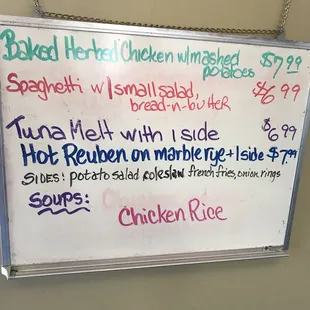 Baked Herbed Chicken w/mashed $7.99
potatoes
Spaghetti w/small salad, $6.99
bread-n-butter
Tuna Melt with 1 side $6.99
Hot Reuben on marble rye + 1 side $7.99
SIDES: potato salad coleslaw french fries, onion rings
SOUPS:
Chicken Rice